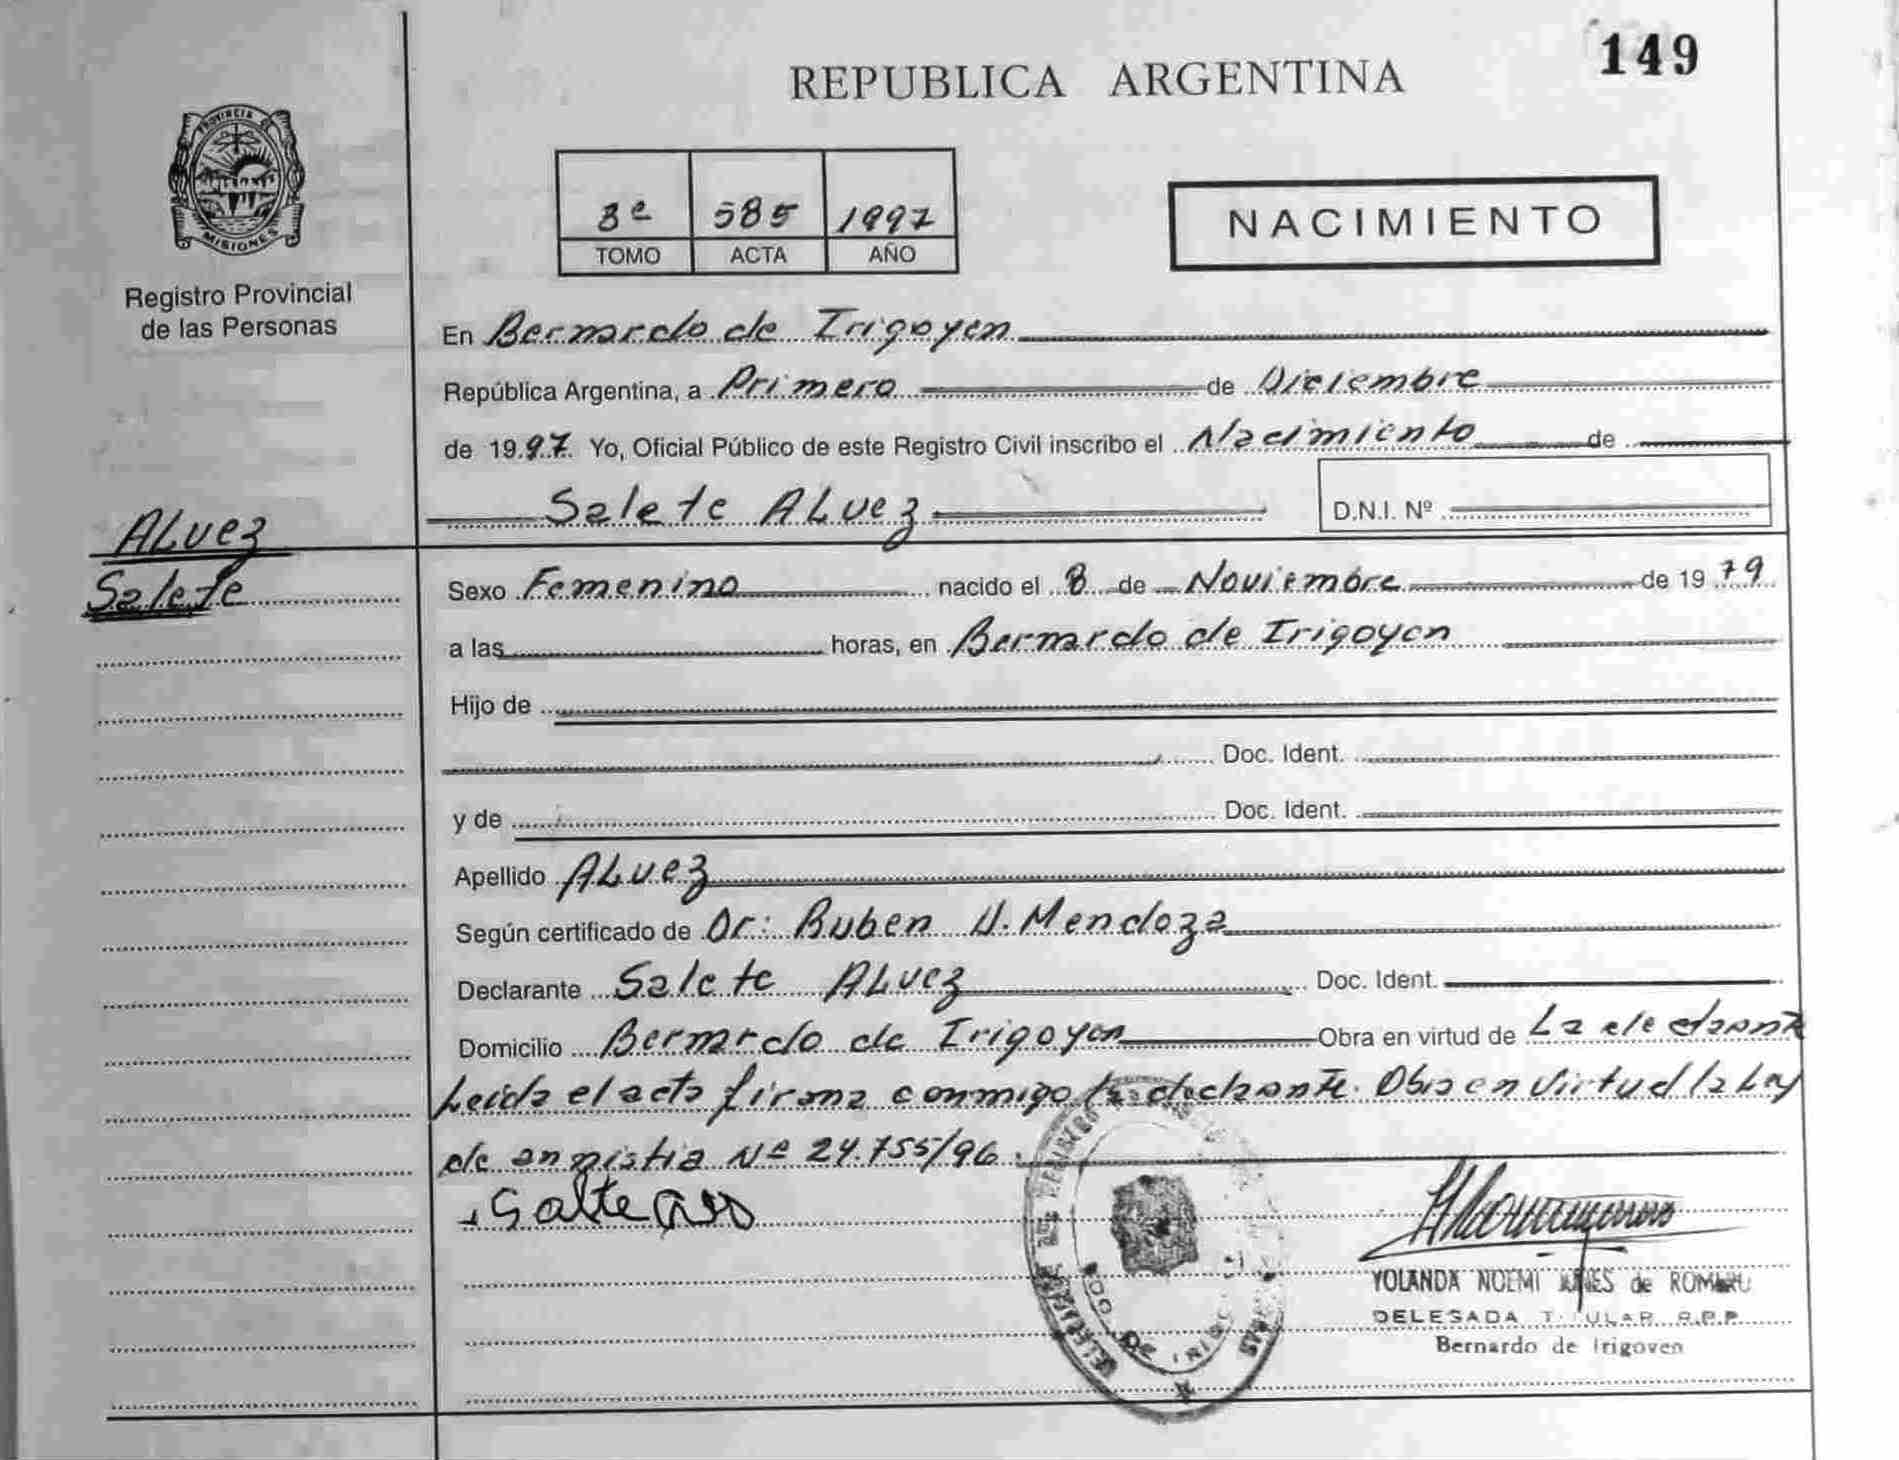 149
REPUBLICA ARGENTINA
PROVINCIA DE
MISIONES
Registro Provincial
de las Personas
3º 585 1997
TOMO ACTA AÑO
NACIMIENTO
En Bernardo de Irigoyen
República Argentina, a Primero de Diciembre
de 1997 Yo, Oficial Público de este Registro Civil inscribo el Nacimiento de
Salete ALvez D.N.I. Nº
ALvez
Salete
Sexo Femenino nacido el 8 de Noviembre de 1979
a las horas, en Bernardo de Irigoyen
Hijo de
Doc. Ident.
y de Doc. Ident.
Apellido ALvez
Según certificado de Dr: Ruben Mendoza
Declarante Salete ALvez Doc. Ident.
Domicilio Bernardo de Irigoyen Obra en virtud de La
Leida el acta firma conmigo la Obra en virtud la Ley
de Nº 24.755/96.
YOLANDA NOEMI de ROMERO
DELEGADA TITULAR R.P.P.
Bernardo de Irigoyen